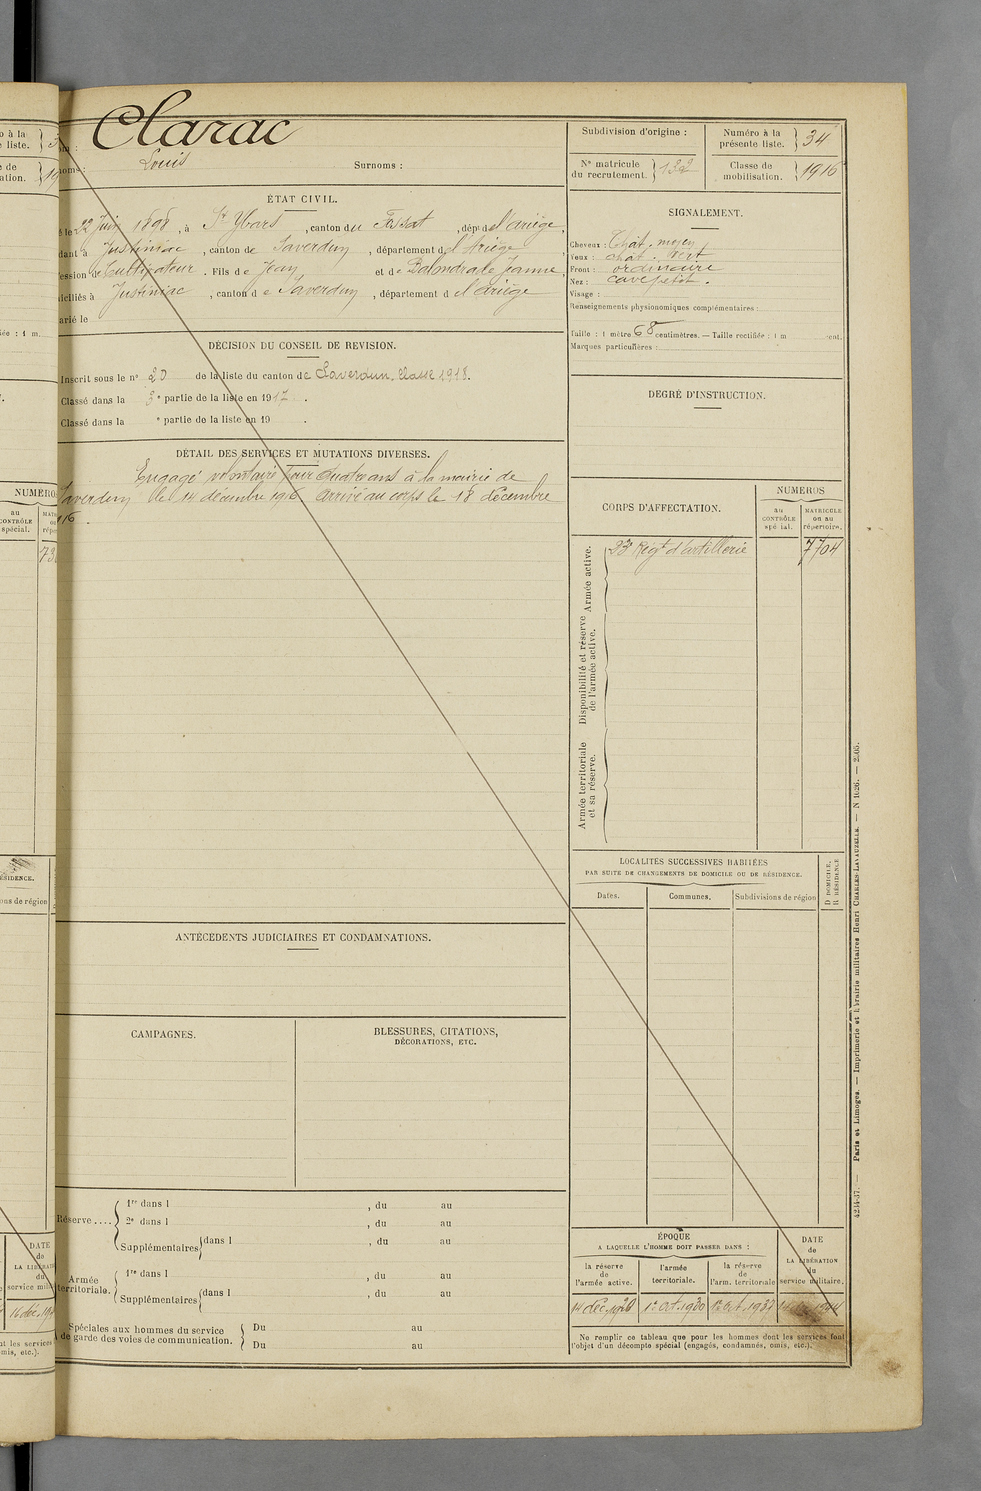 Clarac
Louis Surnoms :
Subdivision d'origine :
Nº matricule du recrutement. 132
Numéro à la présente liste. 34
Classe de mobilisation. 1916
ÉTAT CIVIL.
22 Juin 1898, à St Ybars, canton du Fossat, dép. de l'Ariège,
Justiniac, canton de Saverdun, département de l'Ariège
Cultivateur. Fils de Jean et de Jeanne
Justiniac, canton de Saverdun, département de l'Ariège
arié le
DÉCISION DU CONSEIL DE REVISION.
Inscrit sous le nº 20 de la liste du canton de Saverdun, Classe 1918.
Classé dans la 3e partie de la liste en 1917.
Classé dans la e partie de la liste en 19 .
DÉTAIL DES SERVICES ET MUTATIONS DIVERSES.
Engagé volontaire pour quatre ans à la mairie de
Saverdun le 14 décembre 1916. Arrivé au corps le 18 décembre
1916.
SIGNALEMENT.
Cheveux : Chât. moyen
Yeux : chât. vert
Front : ordinaire
Nez : cave petit.
Visage :
Renseignements physionomiques complémentaires :
Taille : 1 mètre 68 centimètres. — Taille rectifiée : 1 m cent.
Marques particulières :
DEGRÉ D'INSTRUCTION.
CORPS D'AFFECTATION.
NUMÉROS
au CONTRÔLE spécial.
MATRICULE ou au répertoire.
Armée active.
23e Régt d'artillerie 7704
Disponibilité et réserve de l'armée active.
Armée territoriale et sa réserve.
LOCALITÉS SUCCESSIVES HABITÉES
PAR SUITE DE CHANGEMENTS DE DOMICILE OU DE RÉSIDENCE.
Dates. Communes. Subdivisions de région
D DOMICILE.
R RÉSIDENCE
ANTÉCÉDENTS JUDICIAIRES ET CONDAMNATIONS.
CAMPAGNES.
BLESSURES, CITATIONS,
DÉCORATIONS, ETC.
Réserve ....
1re dans l , du au
2e dans l , du au
Supplémentaires dans l , du au
Armée territoriale.
1re dans l , du au
Supplémentaires dans l , du au
Spéciales aux hommes du service de garde des voies de communication.
Du au
Du au
ÉPOQUE
A LAQUELLE L'HOMME DOIT PASSER DANS :
la réserve de l'armée active.
l'armée territoriale.
la réserve de l'arm. territoriale
DATE de LA LIBÉRATION du service militaire.
14 déc. 1920 1er Oct. 1930 1er Oct. 1937
Ne remplir ce tableau que pour les hommes dont les services font
l'objet d'un décompte spécial (engagés, condamnés, omis, etc.).
Paris et Limoges. — Imprimerie et librairie militaires Henri CHARLES-LAVAUZELLE.